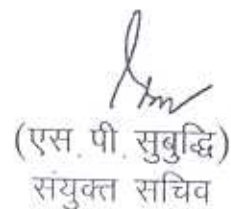 (एस. पी. सुबुद्धि)
संयुक्त सचिव